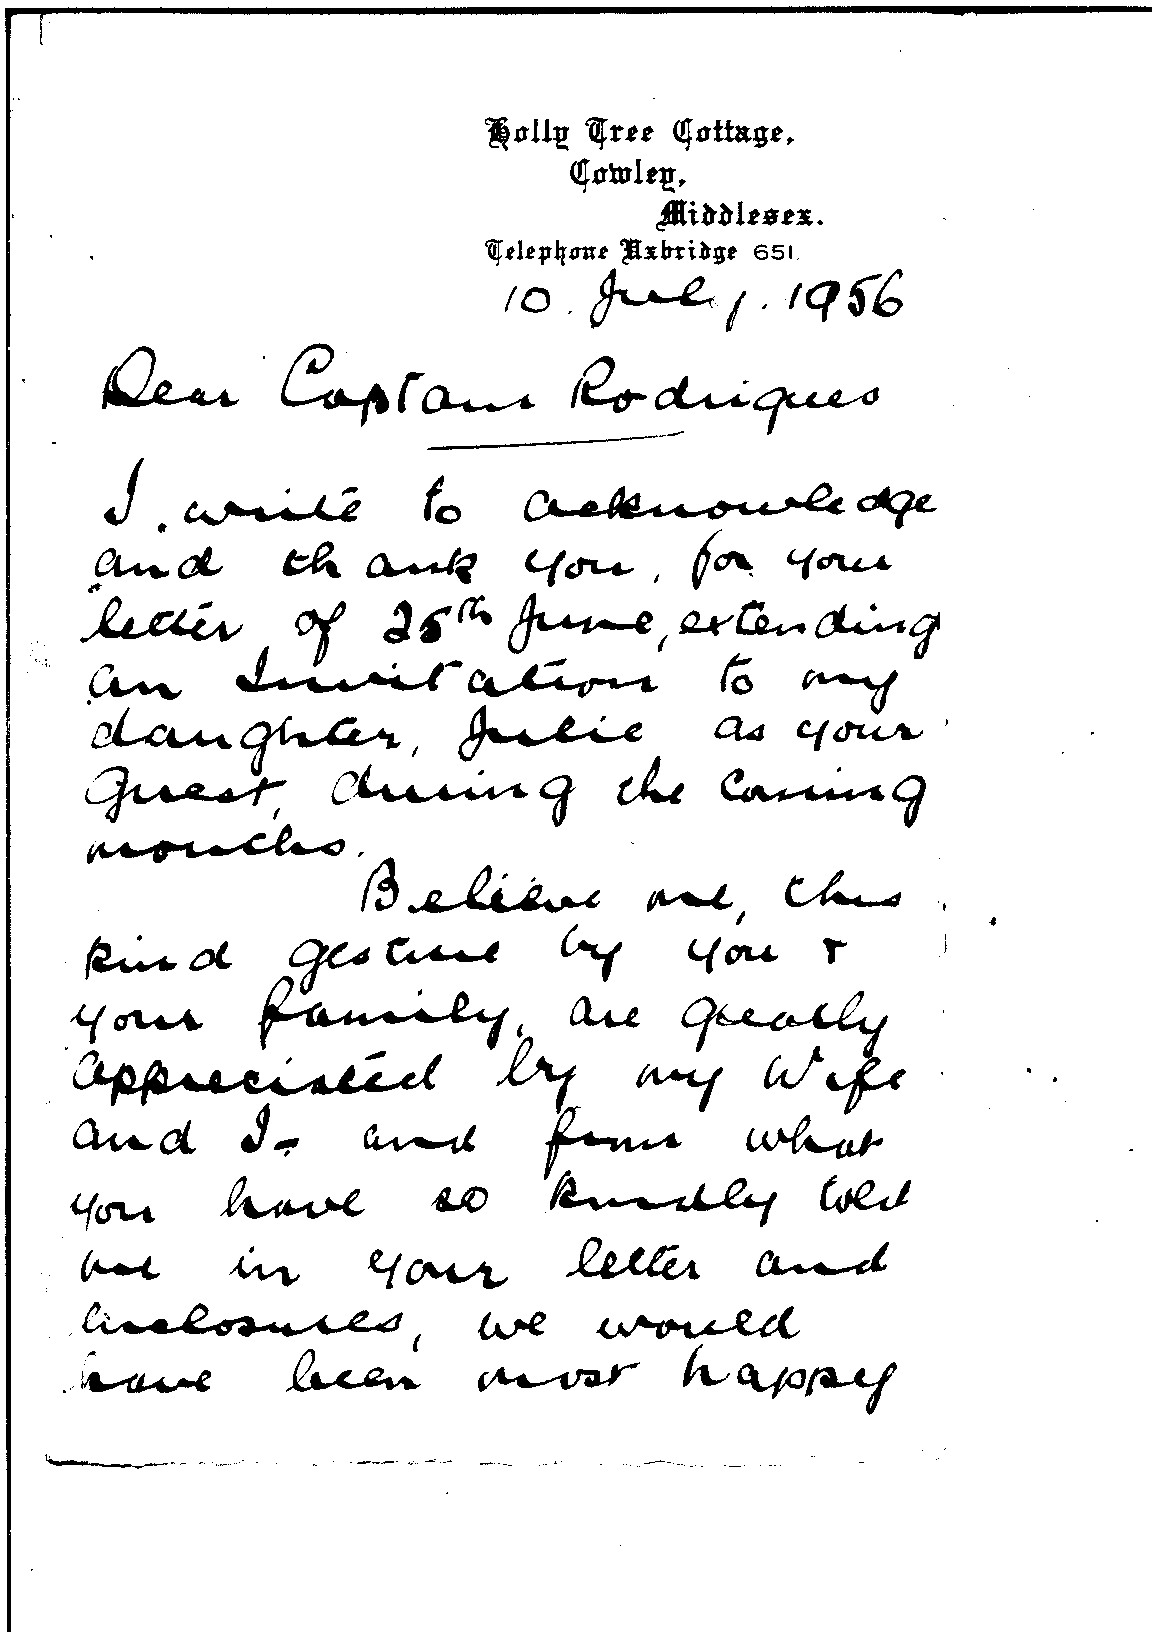 Holly Tree Cottage,
Cowley,
Middlesex.
Telephone Uxbridge 651.
10. July. 1956
Dear Captain Rodrigues
I. write to acknowledge
and thank you, for your
letter of 25th June, extending
an Invitation to my
daughter, Julie as your
Guest, during the coming
months.
Believe me, this
kind gesture by you +
your family, are greatly
appreciated by my Wife
and I - and from what
you have so kindly told
me in your letter and
enclosures, we would
have been most happy